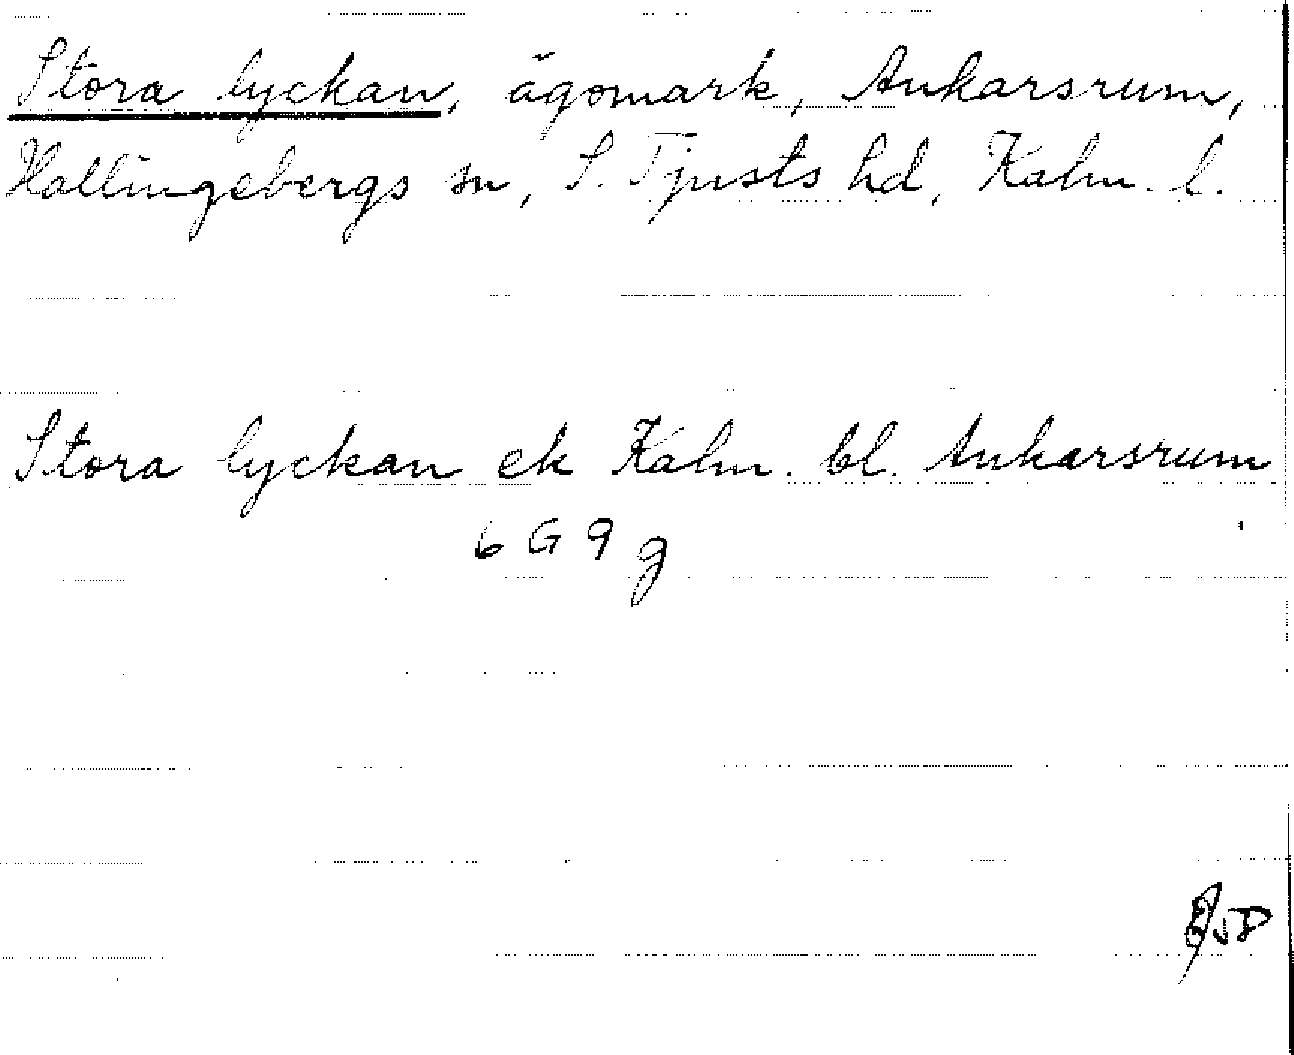 Stora lyckan, ägomark, Ankarsrum,
Hallingebergs sn, S. Tjusts hd, Kalm. l.
Stora lyckan ek Kalm. bl. Ankarsrum
6 G 9 g